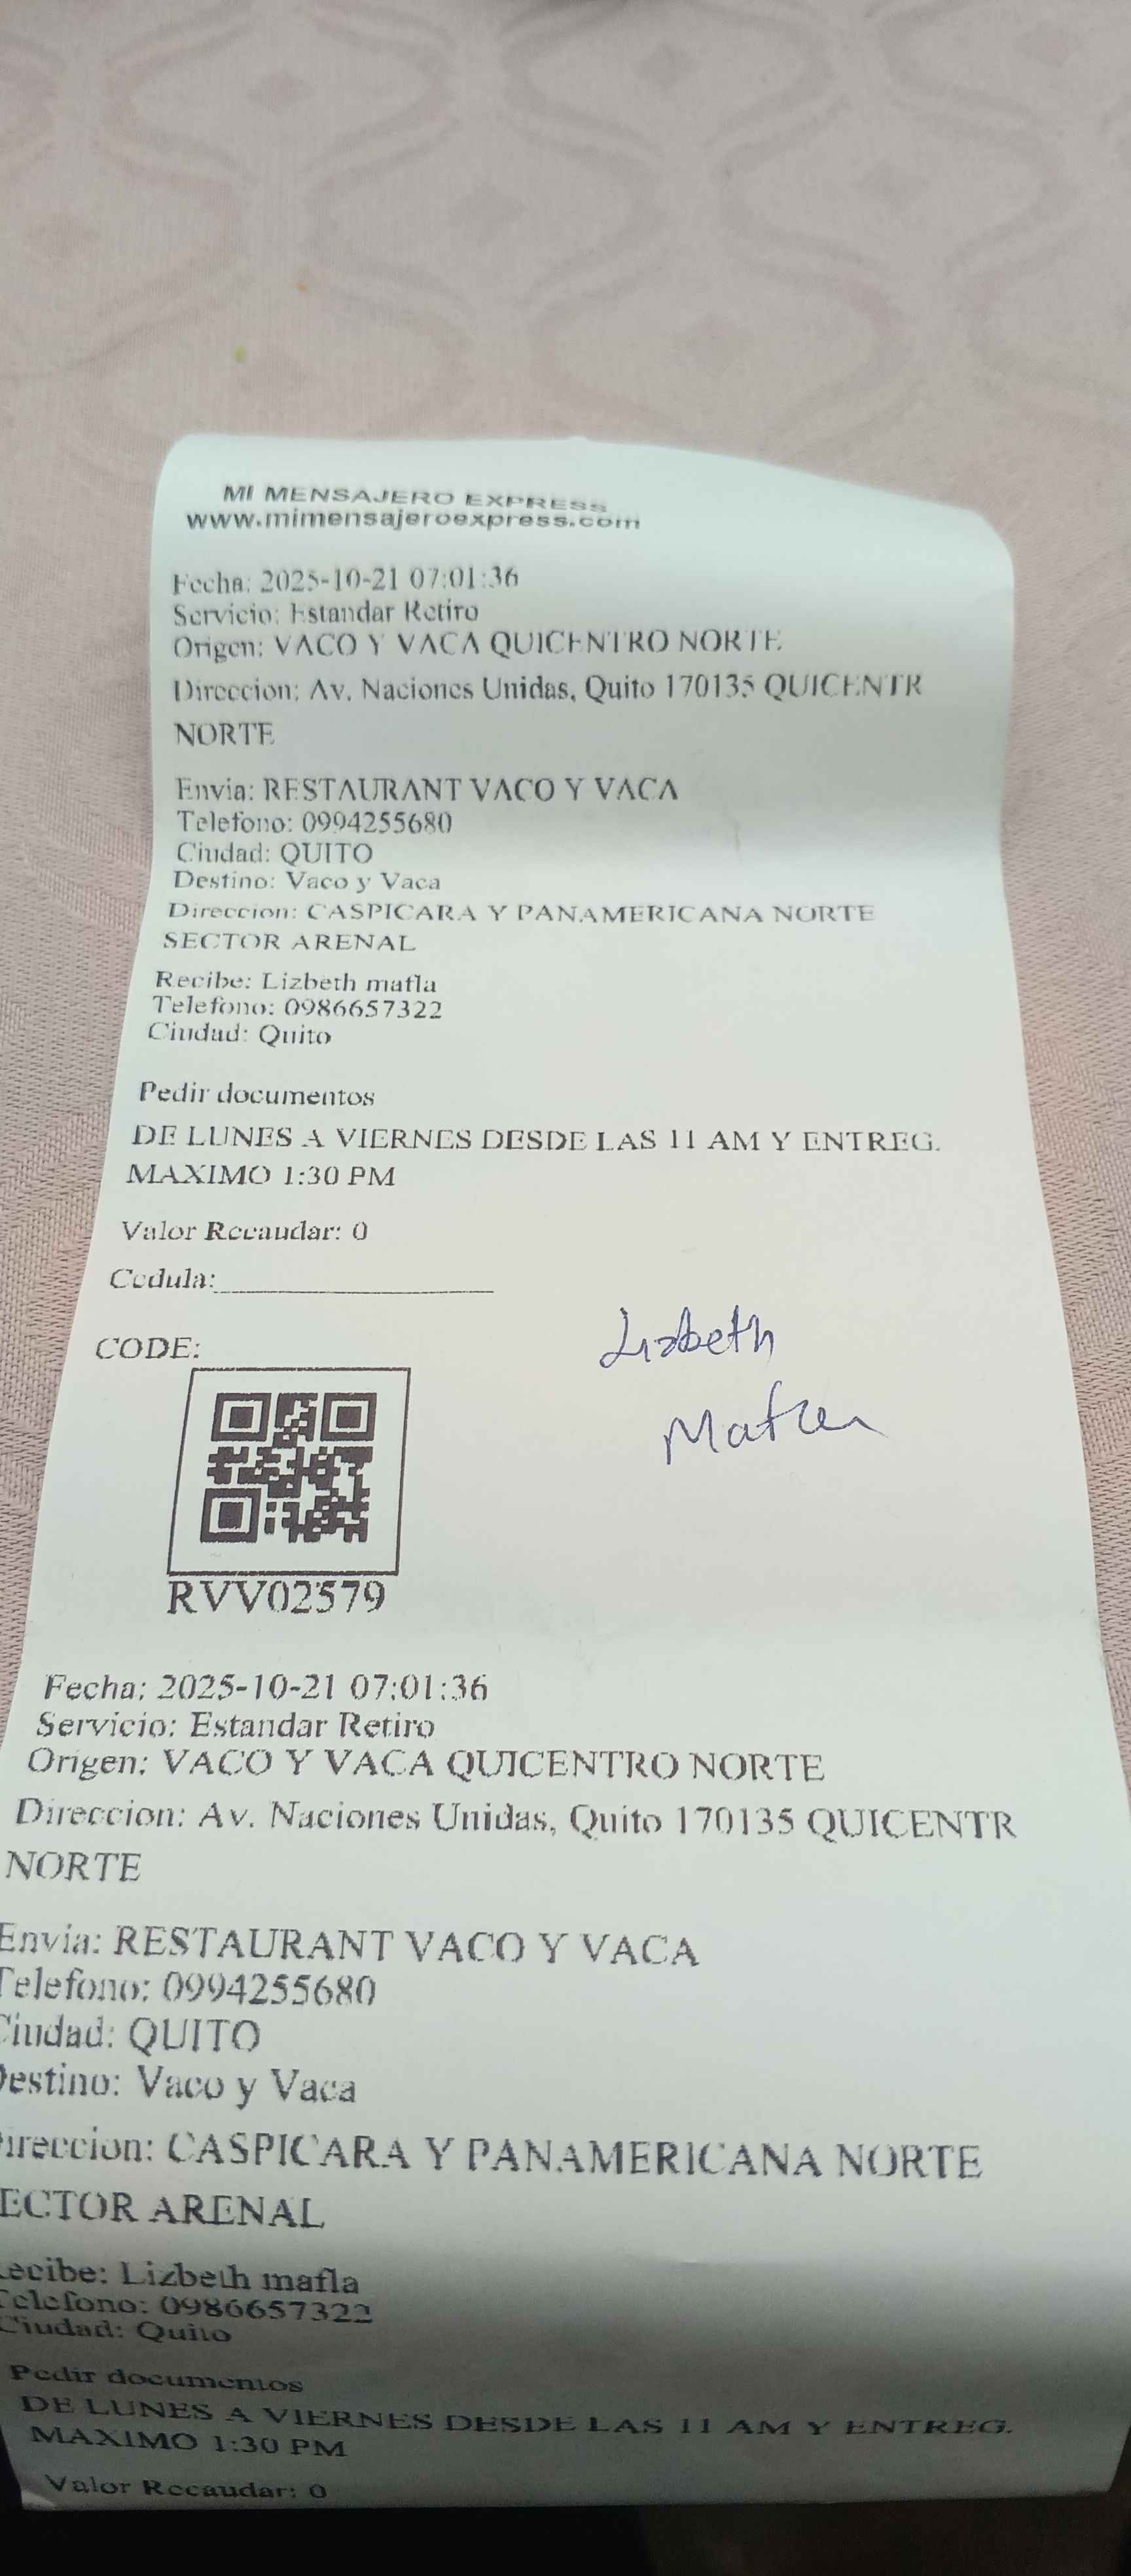 MI MENSAJERO EXPRESS
www.mimensajeroexpress.com
Fecha: 2025-10-21 07:01:36
Servicio: Estandar Retiro
Origen: VACO Y VACA QUICENTRO NORTE
Direccion: Av. Naciones Unidas, Quito 170135 QUICENTR
NORTE
Envia: RESTAURANT VACO Y VACA
Telefono: 0994255680
Ciudad: QUITO
Destino: Vaco y Vaca
Direccion: CASPICARA Y PANAMERICANA NORTE
SECTOR ARENAL
Recibe: Lizbeth mafla
Telefono: 0986657322
Ciudad: Quito
Pedir documentos
DE LUNES A VIERNES DESDE LAS 11 AM Y ENTREG.
MAXIMO 1:30 PM
Valor Recaudar: 0
Cedula:
CODE:
Lizbeth
Mafla
RVV02579
Fecha: 2025-10-21 07:01:36
Servicio: Estandar Retiro
Origen: VACO Y VACA QUICENTRO NORTE
Direccion: Av. Naciones Unidas, Quito 170135 QUICENTR
NORTE
Envia: RESTAURANT VACO Y VACA
Telefono: 0994255680
Ciudad: QUITO
Destino: Vaco y Vaca
Direccion: CASPICARA Y PANAMERICANA NORTE
ECTOR ARENAL
ecibe: Lizbeth mafla
Telefono: 0986657322
Ciudad: Quito
Pedir documentos
DE LUNES A VIERNES DESDE LAS 11 AM Y ENTREG.
MAXIMO 1:30 PM
Valor Recaudar: 0